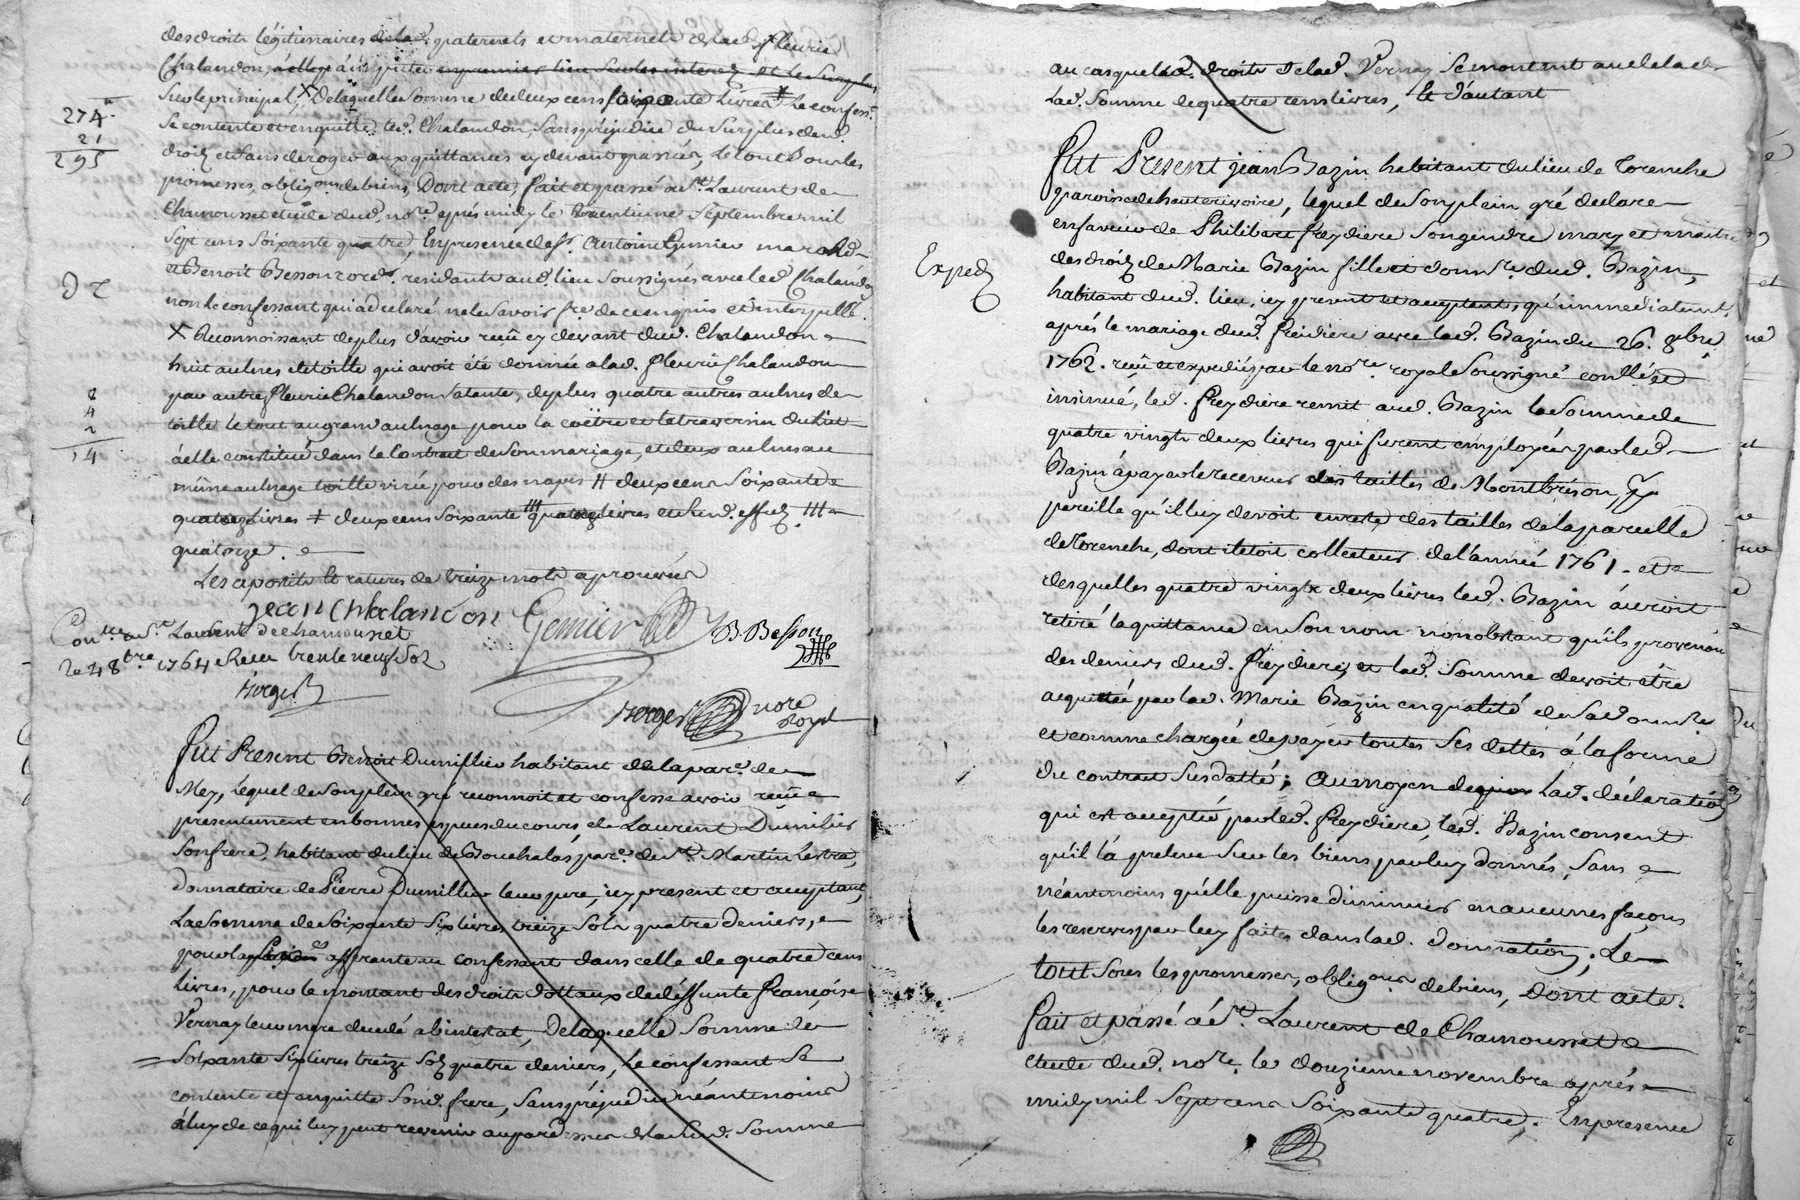 des droits légitimaires paternels et maternels de lad. fleurie
Chalandon,
sur le principal, X de laquelle somme de deux cens soixante livres le confesst.
se contente et en quitte led. Chalandon, sans préjudice du surplus desd.
droits et sans deroger aux quittances cy devant passées, le tout sous les
promesses, obligons. de biens, Dont acte, fait et passé a st. Laurent de
Chamousset etude dud. nore. après midy le trentiune septembre mil
sept cens soixante quatre, En presence de sr. antoine Gemier
et Benoit Besson residants aud. lieu soussignés avec led. Chalandon
non le confessant qui a declaré ne le savoir fre. de ce enquis et interpellé.
X Reconnoissant de plus d'avoir reçû cy devant dud. Chalandon
huit aulnes de toille qui avoit été donnée a lad. fleurie Chalandon
par autre fleurie Chalandon sa tante, de plus quatre autres aulnes de
toille le tout au grand aulnage pour la coëtre et le traversin du lit
à elle constitué dans le Contrat de son mariage, et deux aulnes au
même aulnage toille virée pour des napes # deux cens soixante
quatorze livres + deux cens soixante quatorze livres
quatorze.
Les apostils et ratures de treize mots aprouvées
jean chalandon Gemier B. Besson
274
21
295
D 2
8
4
2
14
Conlé. a st. Laurent de chamousset
le 4 8bre. 1764 Reçu trente neuf sols
Berger
Berger nore royal
Fut Present Benoit Dumillier habitant de la parr. de
Mey, lequel de son plein gré reconnoit et confesse avoir reçû
presentement en bonnes especes du cours de Laurent Dumillier
son frere, habitant du lieu de Bouchalas parr. de st. Martin Lestra,
donnataire de Pierre Dumillier leur pere, icy present et acceptant,
La somme de soixante six livres treize sols quatre deniers,
pour la afferante au confessant dans celle de quatre cens
livres, pour le montant des droits dottaux de deffunte françoise
Vernay leur mere decedé abintestat, De laquelle somme de
soixante six livres treize sols quatre deniers, le confessant se
contente et en quitte sond. frere, sans préjudice néantmoins
à luy de ce qui luy peut revenir au pardessus de lad. somme
au cas que les. droits de lad. Vernay se montent au dela de
lad. somme de quatre cens livres, et d'autant
Exped.
Fut Present jean Bazin habitant du lieu de Torenche
paroisse de hauterivoire, lequel de son plein gré declare
en faveur de Philibert freydiere son gendre mary et maitre
des droits de Marie Bazin fille et donnre. dud. Bazin,
habitant dud. lieu, icy present et acceptant, qu'immediatemt.
après le mariage dud. freidiere avec lad. Bazin du 26. 9bre.
1762. reçû et expedié par le nore. royal soussigné conllé. et
insinué, led. freydiere remit aud. Bazin la somme de
quatre vingts deux livres qui furent employées par led.
Bazin à payer le receveur des tailles de Montbrison,
pareille qu'il luy devoit en reste des tailles de la parcelle
de Torenche, dont il etoit collecteur de l'année 1761. et
desquelles quatre vingts deux livres led. Bazin auroit
retiré la quittance en son nom nonobstant qu'ils provenoient
des deniers dud. freydiere, et lad. somme devoit être
acquittée par lad. Marie Bazin en qualité de sad. donnre.
et comme chargée de payer toutes ses dettes à la forme
du contrat susdatté; au moyen de quoy lad. déclaration
qui est acceptée par led. freydiere, led. Bazin consent
qu'il la preleve sur les biens par luy donnés, sans
néantmoins qu'elle puisse diminuer en aucunes façons
les reserves par luy faites dans lad. donnation; Le
tout sous les promesses, obligons. de biens, Dont acte.
fait et passé à st. Laurent de Chamousset
etude dud. nore. le douzieme novembre après
midy mil sept cens soixante quatre. En presence